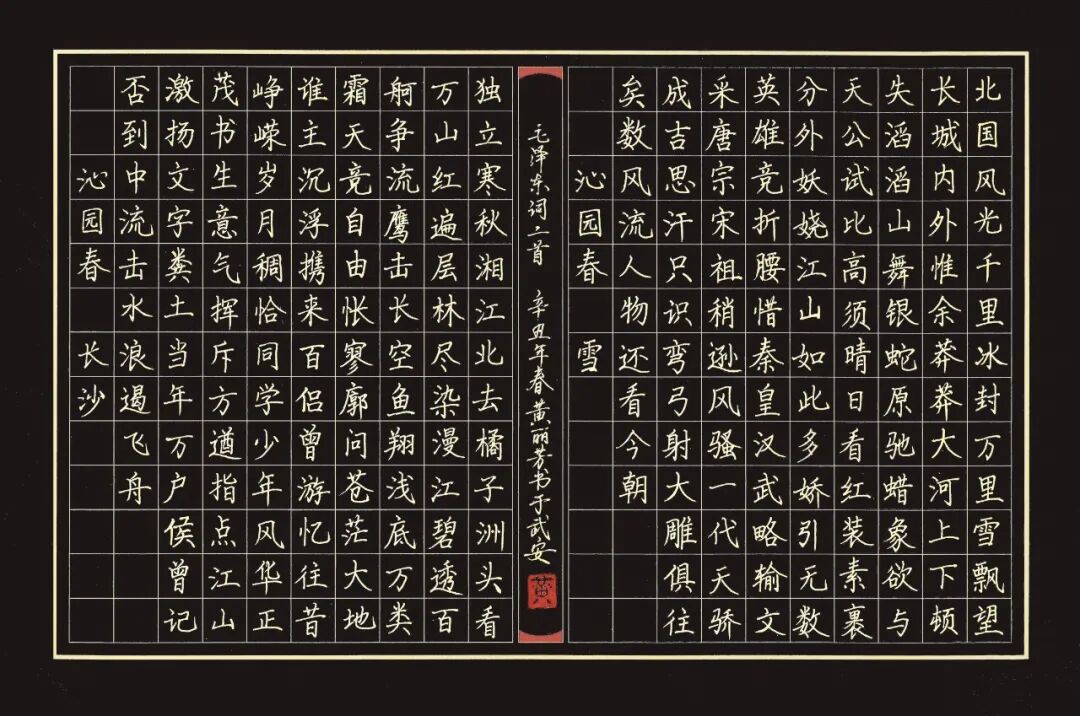 北国风光千里冰封万里雪飘望
长城内外惟余莽莽大河上下顿
失滔滔山舞银蛇原驰蜡象欲与
天公试比高须晴日看红装素裹
分外妖娆江山如此多娇引无数
英雄竞折腰惜秦皇汉武略输文
采唐宗宋祖稍逊风骚一代天骄
成吉思汗只识弯弓射大雕俱往
矣数风流人物还看今朝
沁园春 雪
毛泽东词二首 辛丑年春黄丽芳书于武安
黄
独立寒秋湘江北去橘子洲头看
万山红遍层林尽染漫江碧透百
舸争流鹰击长空鱼翔浅底万类
霜天竞自由怅寥廓问苍茫大地
谁主沉浮携来百侣曾游忆往昔
峥嵘岁月稠恰同学少年风华正
茂书生意气挥斥方遒指点江山
激扬文字粪土当年万户侯曾记
否到中流击水浪遏飞舟
沁园春 长沙